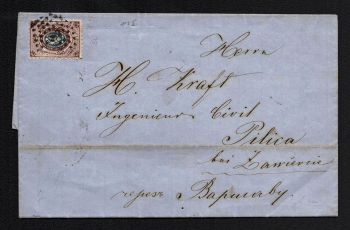 Herrn
H. Kraft
Ingenieur Civil
Pilica
bei Zawiercie
через Варшаву.